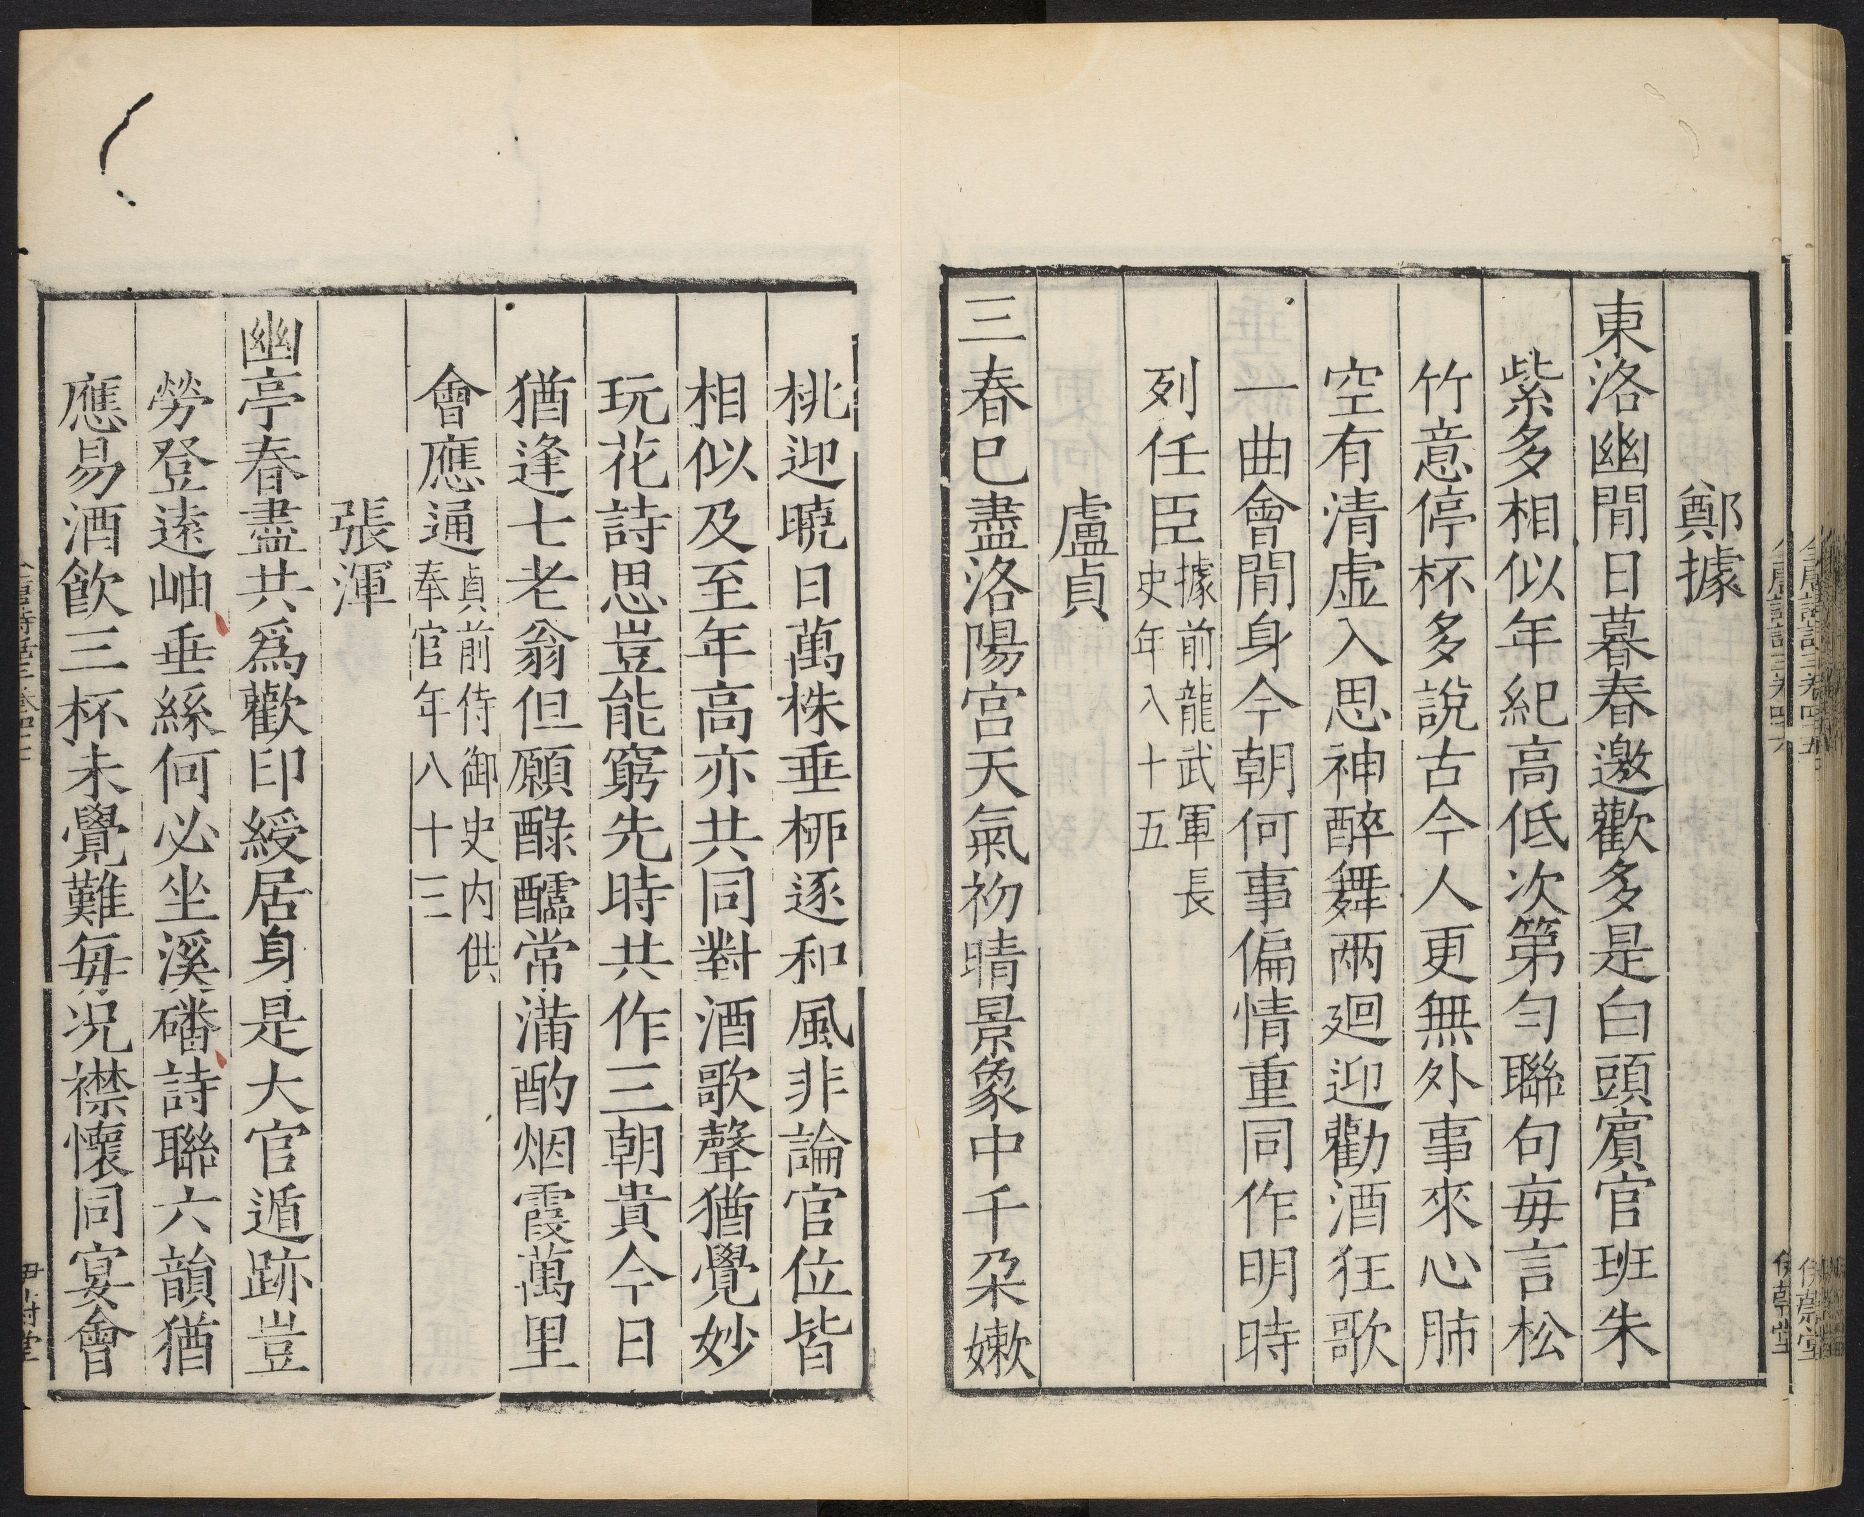 鄭據
東洛幽閒日暮春邀歡多是白頭賔官班朱
紫多相似年紀高低次第勻聯句每言松
竹意停杯多說古今人更無外事來心肺
空有清虛入思神醉舞兩廻迎勸酒狂歌
一曲會閒身今朝何事偏情重同作明時
列任臣據前龍武軍長史年八十五
盧貞
三春已盡洛陽宮天氣初晴景象中千朶嫰
桃迎曉日萬株垂栁逐和風非論官位皆
相似及至年高亦共同對酒歌聲猶覺妙
玩花詩思豈能窮先時共作三朝貴今日
猶逢七老翁但願醁醽常滿酌烟霞萬里
會應通貞前侍御史内供奉官年八十三
張渾
幽亭春盡共爲歡印綬居身是大官遁跡豈
勞登逺岫垂絲何必坐溪磻詩聯六韻猶
應易酒飲三杯未覺難每况襟懷同宴會